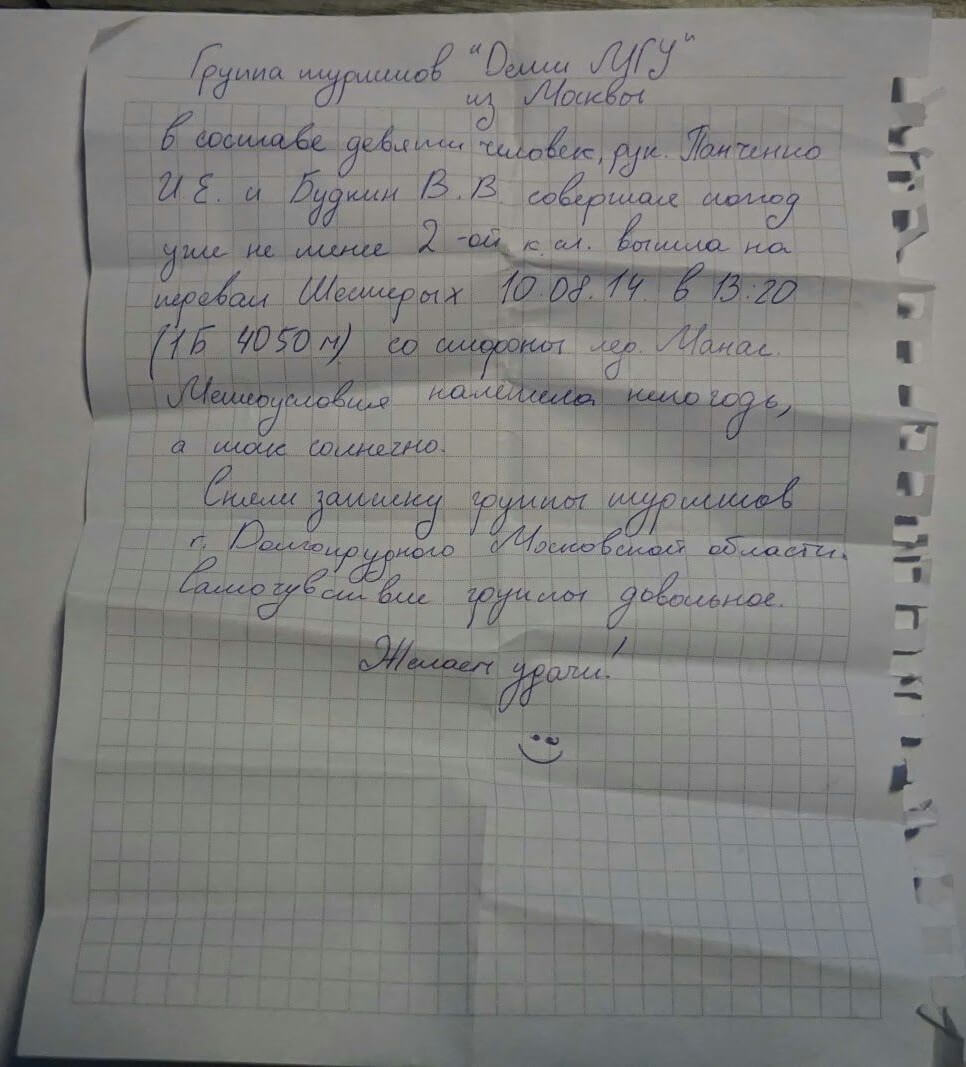 Группа туристов "Дети МГУ"
из Москвы
в составе девяти человек, рук. Панченко
И.Е. и Будкин В.В. совершая поход
уже не менее 2-ой к.сл. вышла на
перевал Шестерых 10.08.14. в 13:20
(1Б 4050 м) со стороны лед. Манас.
Метеоусловия налетела непогодь,
а так солнечно.
Сняли записку группы туристов
г. Долгопрудного Московской области.
Самочувствие группы довольное.
Желаем удачи!